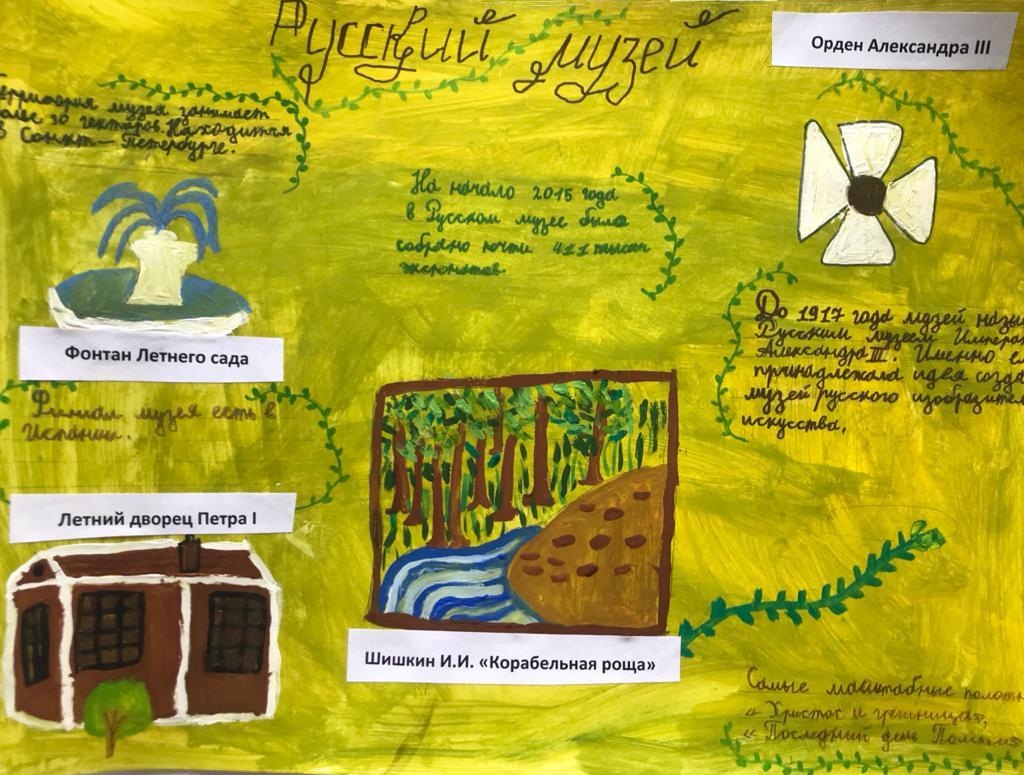 Русский музей
Орден Александра III
ерритория музея занимает
олее 30 гектаров. Находится
в Санкт-Петербурге.
На начало 2015 года
в Русском музее было
собрано почти 411 тысяч
экспонатов.
Фонтан Летнего сада
До 1917 года музей назы
Русским музеем Импера
Александра III. Именно е
принадлежала идея созда
музей русского изобразител
искусства.
Филиал музея есть в
Испании.
Летний дворец Петра I
Шишкин И.И. «Корабельная роща»
Самые масштабные полотн
« Христос и грешница»,
« Последний день Помпеи»